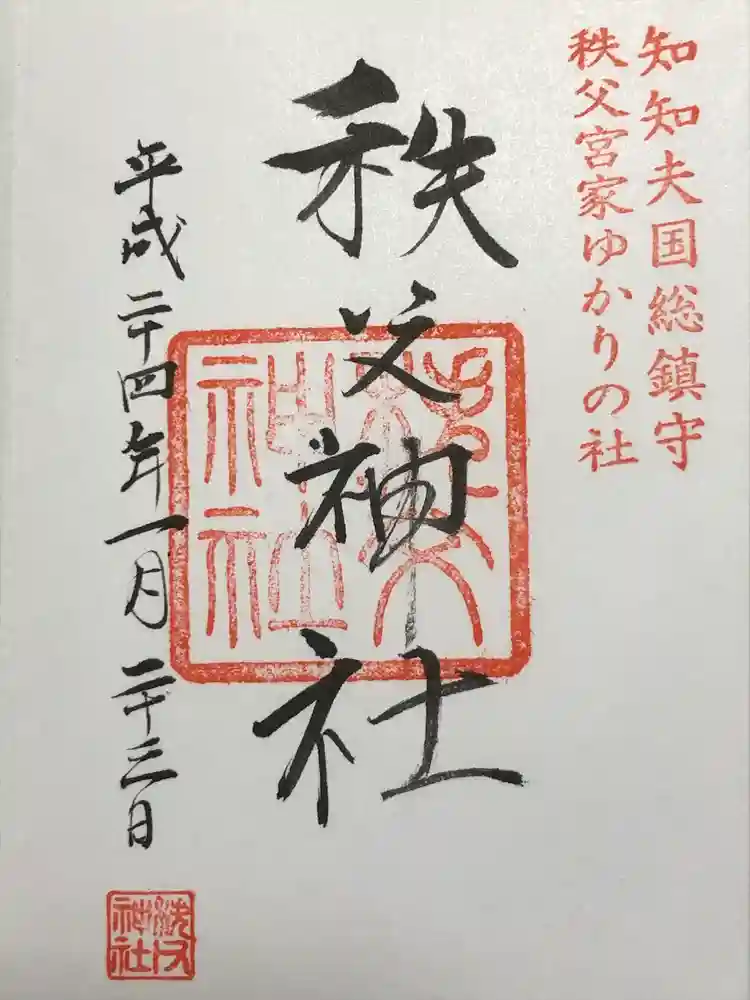 知知夫国総鎮守
秩父宮家ゆかりの社
秩父神社
平成二十四年一月二十三日
秩父神社
秩父神社